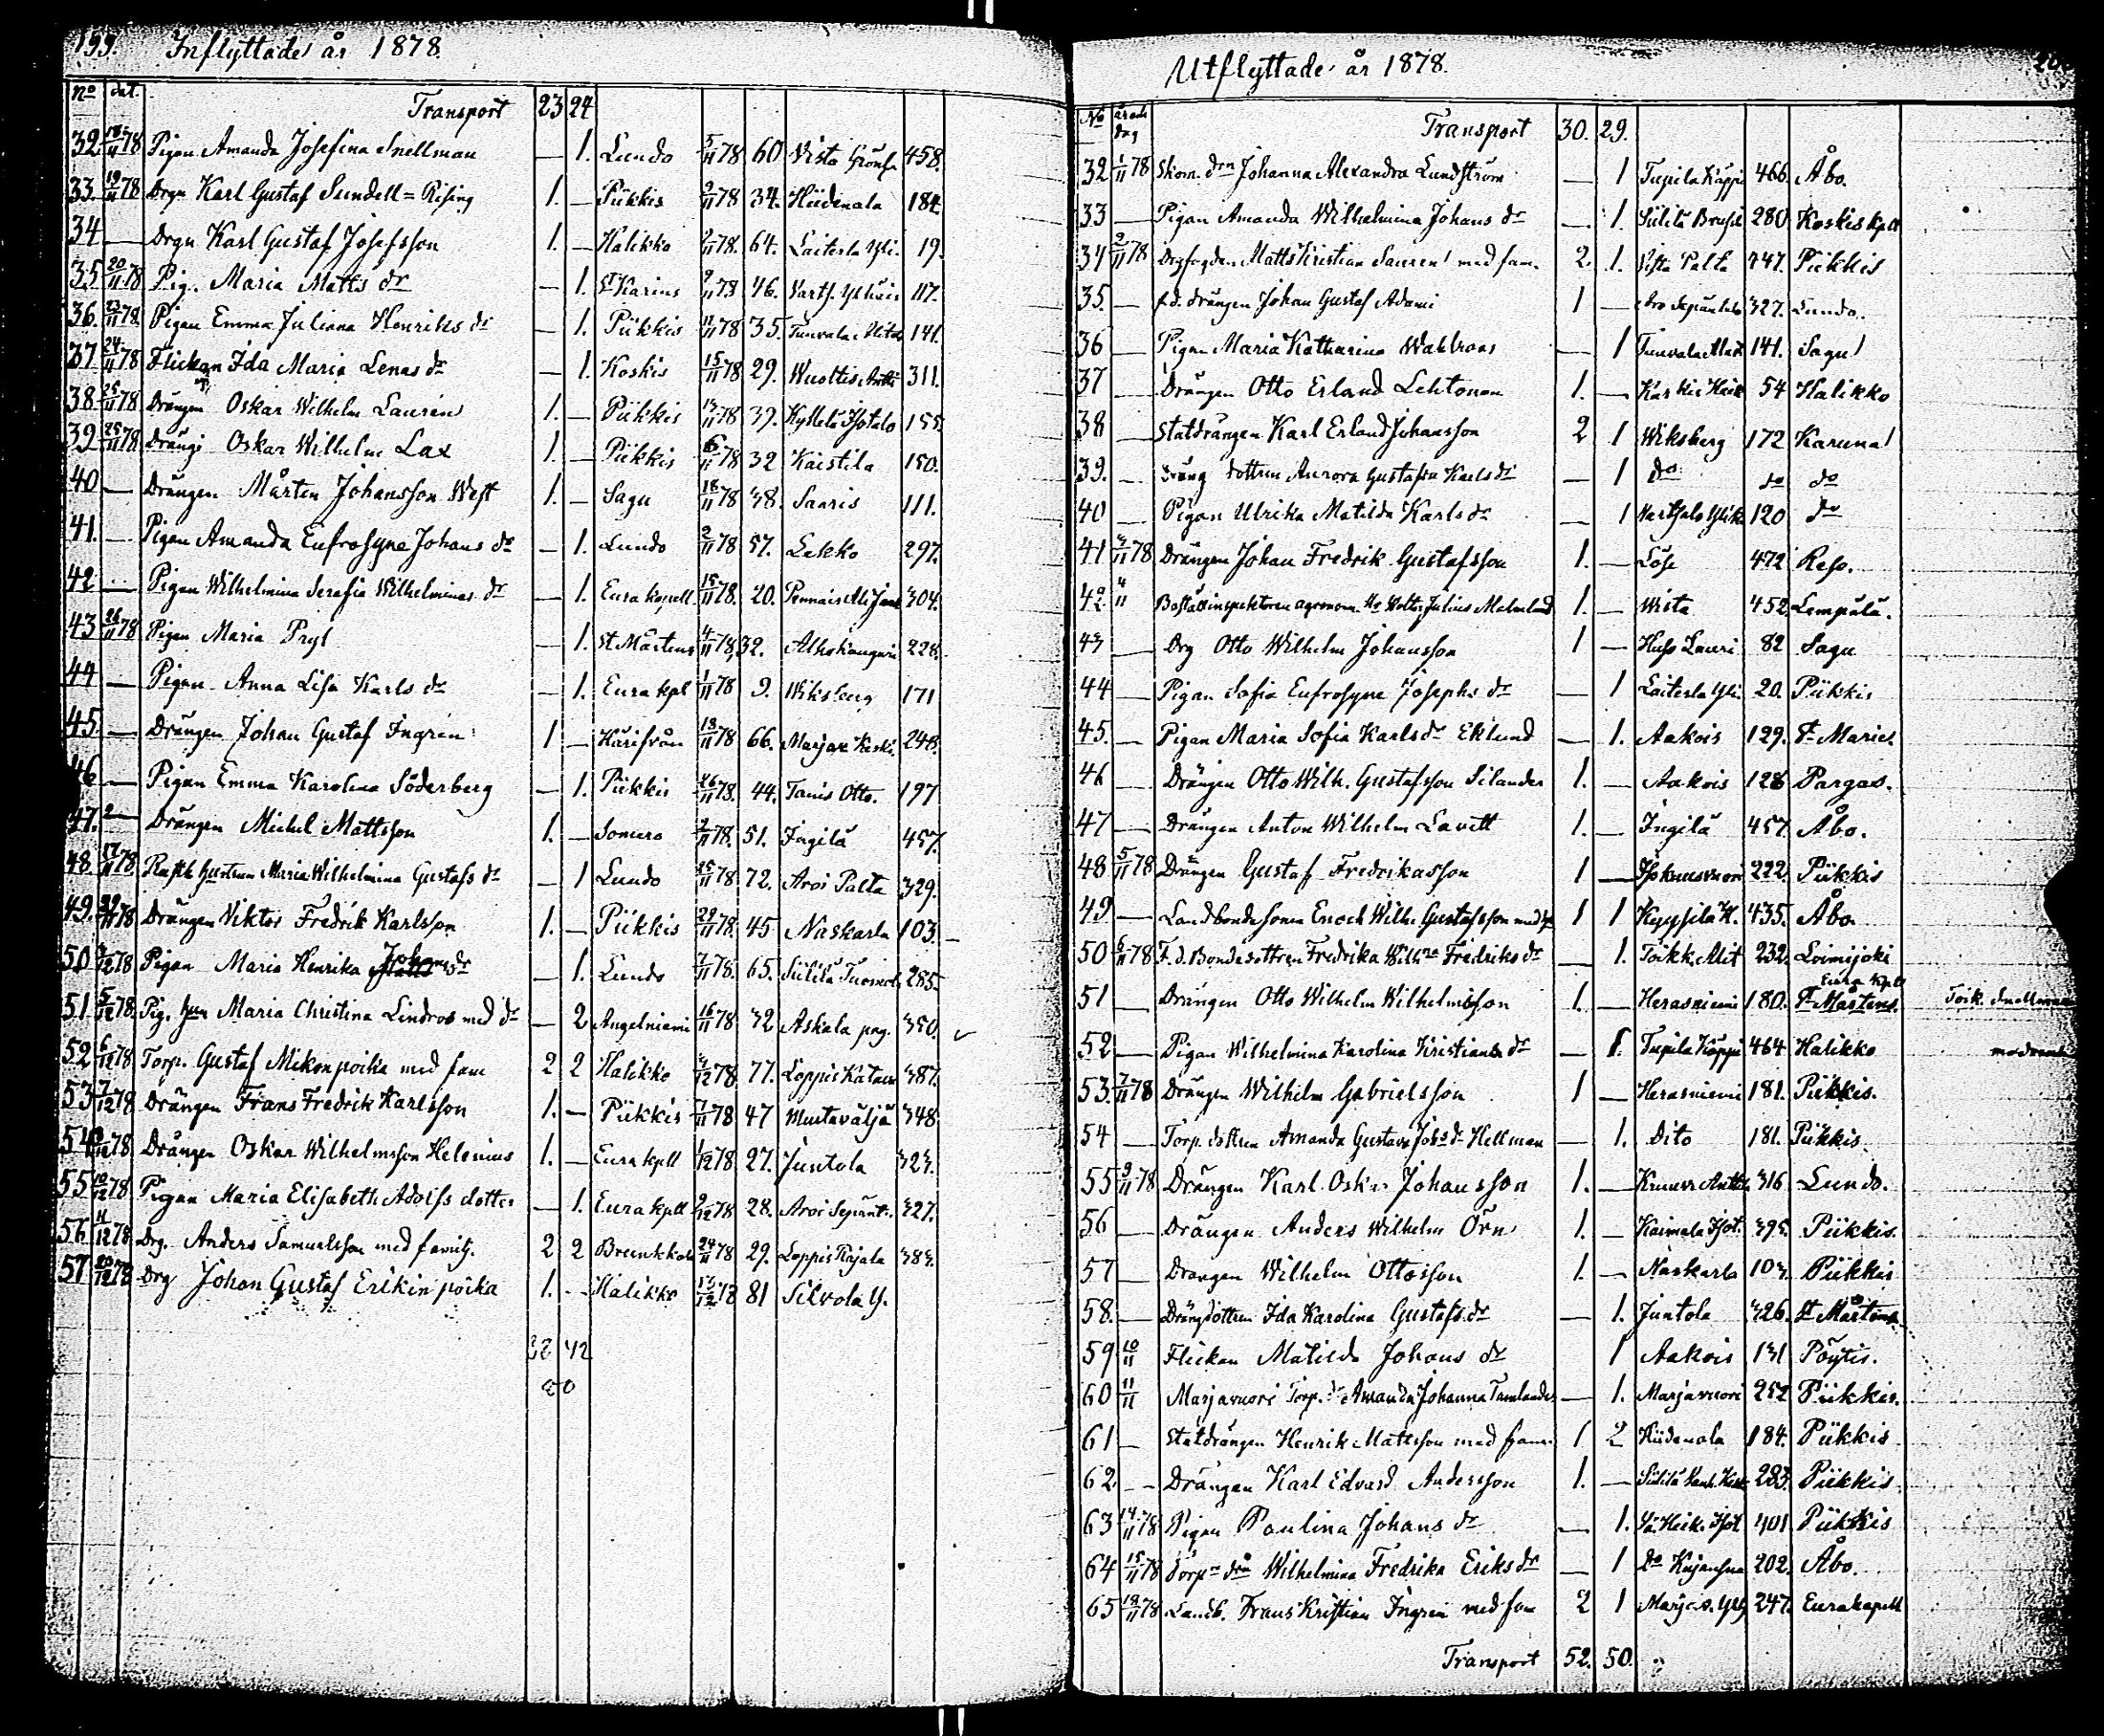 199. Inflyttade år 1878.
No dat. Transport 23 24
32 18/11 78 Pigan Amanda Josefina Snellman — 1. Lundo 5/11 78 60 Vista 458.
33. 19/11 78 Drgn Karl Gustaf Sundell = Rising 1. — Piikkis 9/11 78 34. Hiidenala 184.
34 — Drgn Karl Gustaf Josefsson 1. — Halikko 2/11 78. 64. Laiterla Yli. 19.
35 20/11 78 Pig. Maria Matts dr — 1. St Karins 9/11 78 46. 117.
36. 23/11 78. Pigan Emma Juliana Henriks dr — 1. Piikkis 11/11 78 35. Tunvala 141.
37 24/11 78 Flickan Ida Maria Lenas dr — 1. Koskis 15/11 78 29. Wuoltis Antti 311.
38. 25/11 78 Drängen Oskar Wilhelm Laurén 1. — Piikkis 13/11 78 39. Isotalo 155.
39 25/11 78 Drängn Oskar Wilhelm Lax 1. — Piikkis 6/11 78 32 Kaistila 150.
40 — Drängen Mårten Johansson West 1. — Sagu 18/11 78 38. Saaris 111.
41. — Pigan Amanda Eufrosyne Johans dr — 1. Lundo 2/11 78 57. Lakko 297.
42 — Pigan Wilhelmina Serafia Wilhelminas dr — 1. Eura kapell. 15/11 78. 20. 304.
43 26/11 78 Pigan Maria Pryl — 1. St Mårtens 4/11 78, 32. Alhokanguri 228.
44 — Pigan Anna Lisa Karls dr — 1. Eura kpl 1/11 78 9. Wiksberg 171
45. — Drängen Johan Gustaf Ingrén 1 — Härifrån 18/11 78 66. Marjav. Kesk. 248.
46 — Pigan Emma Karolina Söderberg — 1. Piikkis 26/11 78. 44. Tanis Otto. 197
47. — Drängen Michel Mattsson 1. — Somero 2/11 78. 51. Ingilä 457.
48. 78 hustrun Maria Wilhelmina Gustafs dr — 1 Lundo 25/11 78 72. Aroi Palta 329.
49. 29/11 78 Drängen Viktor Fredrik Karlsson 1. — Piikkis 29/11 78. 45 Naskarla 103. —
50 12 78 Pigan Maria Henrika Johans dr — 1. Lundo 7/11 78. 65. Siililä 285.
51 5/12 78. Pig. hun Maria Christina Lindros med dr — 2 Angelniemi 16/11 78 32 Askala prg. 350.
52 6/12 78 Torp. Gustaf Mikonpoika med fam 2 2 Halikko 12 78 77. Loppis 387.
53 7/12 78 Drängen Frans Fredrik Karlsson 1. — Piikkis 7/11 78 47 Mustaväljä 348
54 12 78 Drängen Oskar Wilhelmsson Helenius 1. — Eura kpll 12 78 27. Juntola 323.
55 10/12 78 Pigan Maria Elisabeth Adolfs dotter — 1. Eura kpll 9/12 78 28. Aroi 327.
56. 11/12 78 Drg. Anders Samuelsson med familj. 2 2 24/11 78 29. Loppis Rajala 383.
57 20/12 78 Drg Johan Gustaf Erikinpoika 1. — Halikko 13/12 78 81 Silvola Y.
32 42
Utflyttade år 1878.
No år och dag Transport 30. 29.
32 1/11 78 Skom. drn Johanna Alexandra Lundström — 1 Tupila Käppi 466. Åbo.
33 — Pigan Amanda Wilhelmina Johans dr — 1. Siililä 280 Koskis kpll
34 2/11 78 Drgfogden Matts Kristian Saurén med fam. 2. 1. Vista Palta 447. Piikkis
35. — f.d. drängen Johan Gustaf Adami 1 — Aro 327. Lundo.
36 — Pigan Maria Katharina Wahlroos — 1 Tunvala 141. Sagu
37 — Drängen Otto Erland Lehtonen 1. — 54 Halikko
38 — Statdrängen Karl Erland Johansson 2 1 Wiksberg 172 Karuna
39. — Dräng dottern Aurora Gustafva Karls dr — 1 do do do
40 — Pigan Ulrika Matilda Karls dr — 1 120 do
41 4/11 78 Drängen Johan Fredrik Gustafsson 1. — Löse 472 Reso.
42. 4/11 agronom Hr Julius Malmlund 1. — Wista 452 Lempälä.
43 — Drg Otto Wilhelm Johansson 1 — Huso Lauri 82 Sagu
44 — Pigan Sofia Eufrosyne Josephs dr — 1 Laiterla Yli. 20. Piikkis
45. — Pigan Maria Sofia Karls dr Eklund — 1. Aakois 129. St Marie
46 — Drängen Otto Wilh. Gustafsson Silander 1. — Aakois 128 Pargas.
47 — Drängen Anton Wilhelm Lavitt 1. — Ingilä 457. Åbo.
48 5/11 78 Drängen Gustaf Fredriksson 1 — 222. Piikkis
49 — Landbondesonen Enoch Wilh. Gustafsson 1 1 435. Åbo.
50 6/11 78 F.d. Bondedottren Fredrika Fredriks dr — 1. Toikk. Alit 232. Loimijoki
Eura Kpll
51 — Drängen Otto Wilhelm Wilhelmsson 1. — Herasniemi 180. St Mårtens. Toik. Snellman
52 — Pigan Wilhelmina Karolina Kristians dr — 1. Tupila Käppi 464 Halikko
53. 7/11 78 Drängen Wilhelm Gabrielsson 1 — Herasniemi 181. Piikkis.
54 — Torp. dottren Amanda Gustava Hellman — 1. Dito 181. Piikkis
55 9/11 78 Drängen Karl Oskar Johansson 1. — 316 Lundo.
56 — Drängen Anders Wilhelm Örn 1. — Kaimala 395. Piikkis.
57 — Drängen Wilhelm Ottosson 1. — Naskarla 103. Piikkis
58. — Drängdottren Ida Karolina Gustafs dr — 1. Juntola 326. St Mårtens
59 10/11 Flickan Matilda Johans dr 1 Aakois 131 Pöytis.
60 11/11 Marjavuori Torp. dr Amanda Johanna — 1. Marjavuori 252 Piikkis.
61 — Statdrängen Henrik Mattsson med fam. 1 2 Hiidenala 184. Piikkis
62 — Drängen Karl Edvard Andersson 1. — Siililä 283. Piikkis
63 14/11 78 Pigan Paulina Johans dr — 1. 401 Piikkis
64 15/11 78 Torp. Wilhelmina Fredrika Eriks dr — 1 202. Åbo.
65 18/11 78 Landb. Frans Kristian Ingrén med fam 2 1 247. Eurakapell
Transport 52. 50.